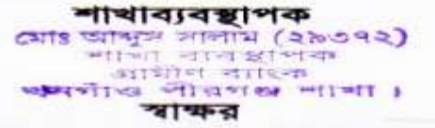 শাখাব্যবস্থাপক
মোঃ আব্দুস সালাম (২৯৩৭২)
শাখা ব্যবস্থাপক
গ্রামীণ ব্যাংক
পীরগঞ্জ শাখা ।
স্বাক্ষর